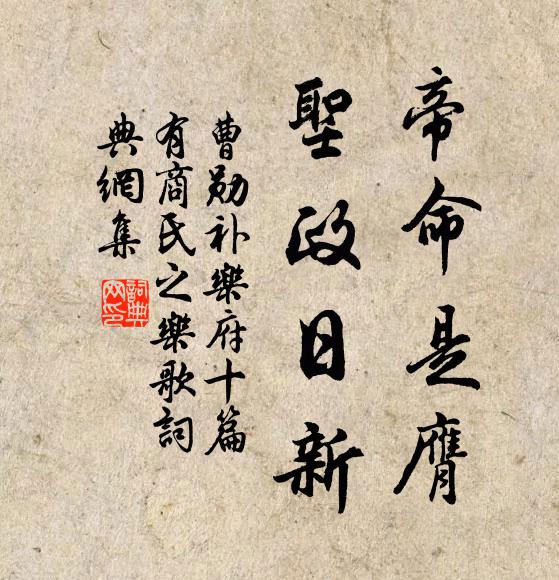 帝命是膺
聖政日新
曹勛补樂府十篇
有商氏之樂歌詞
典網集
詞典网印